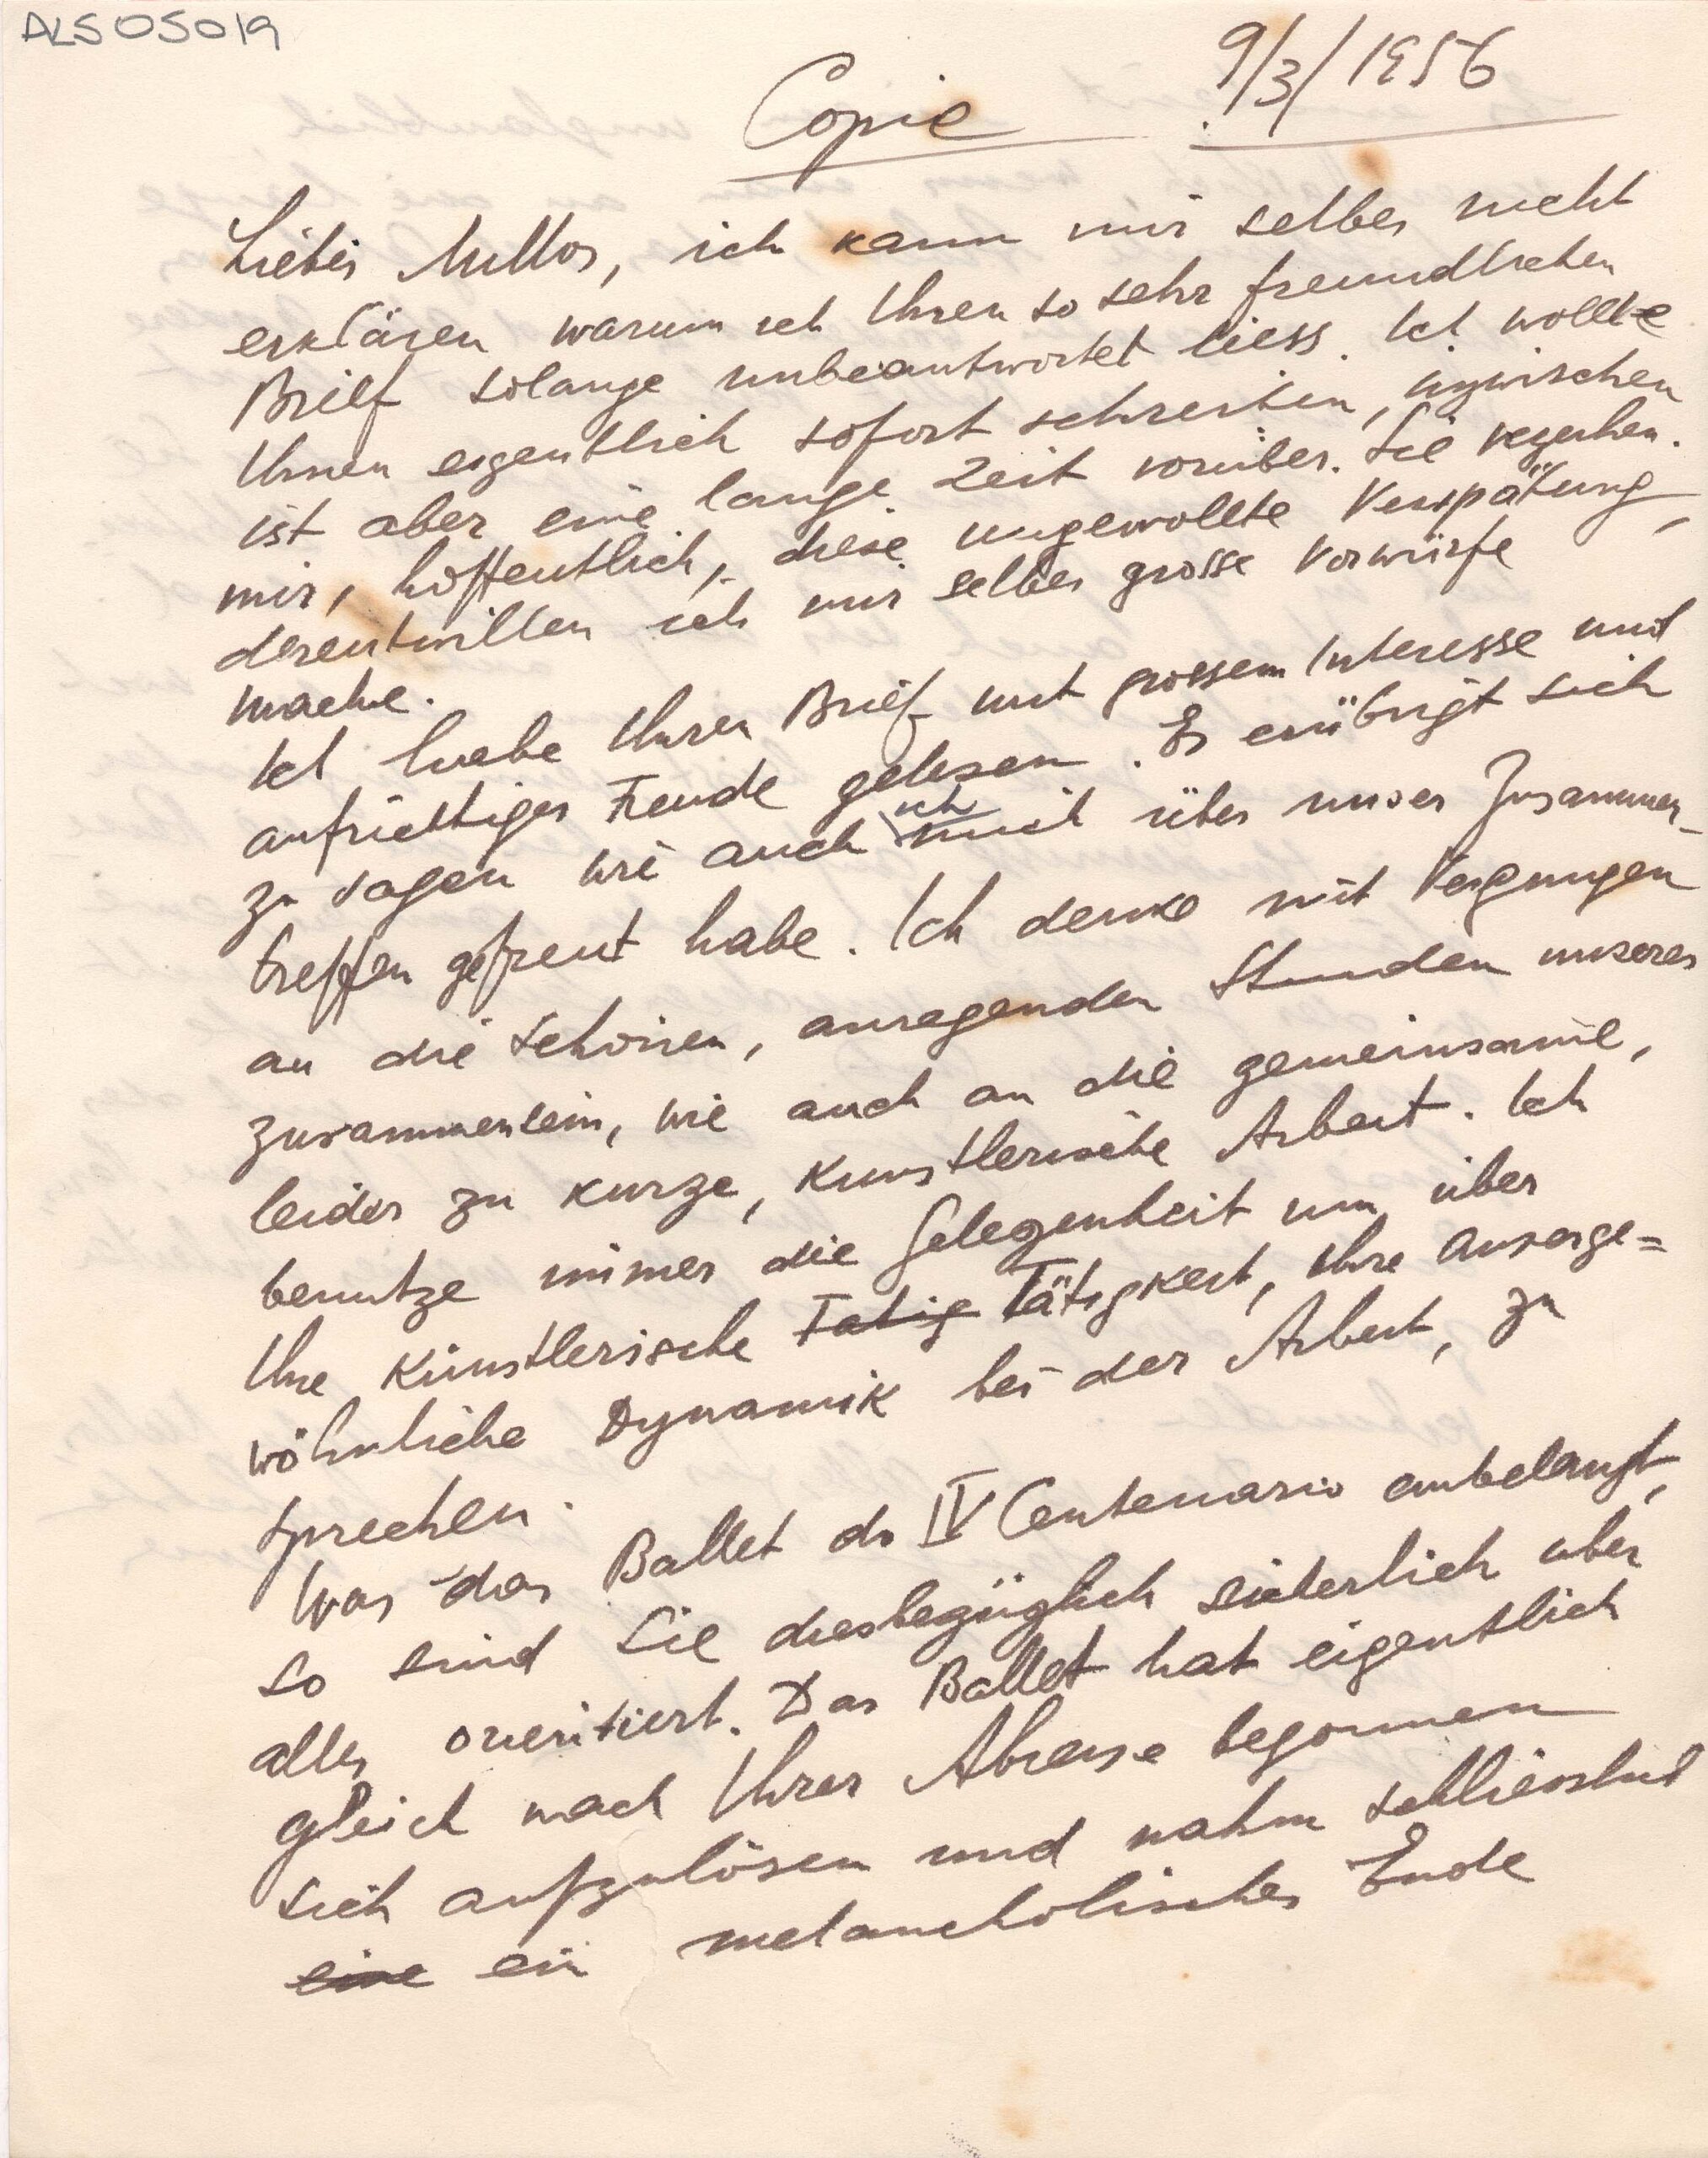 ALS 05019
Copie 9/3/1956
Lieber Millos, ich kann mir selber nicht
erklären warum ich Ihren so sehr freundlichen
Brief solange unbeantwortet liess. Ich wollte
Ihnen eigentlich sofort schreiben, inzwischen
ist aber eine lange Zeit vorüber. Sie verzeihen
mir, hoffentlich, diese ungewollte Verspätung,
derentwillen ich mir selber grosse Vorwürfe
mache.
Ich habe Ihren Brief mit grossem Interesse und
aufrichtiger Freude gelesen. Es erübrigt sich
zu sagen wie auch ich mich über unser Zusammen-
treffen gefreut habe. Ich denke mit Vergnugen
an die schönen, anregenden Stunden unseres
zusammensein, wie auch an die gemeinsame,
leider zu kurze, Kunstlerische Arbeit. Ich
benutze immer die Gelegenheit um über
Ihre Künstlerische Tatig Tätigkeit, Ihre Auserge=
wöhnliche Dynamik bei der Arbeit, zu
sprechen.
Was das Ballet do IV Centenario anbelangt,
so sind Sie diesbezüglich sicherlich über
alles orientiert. Das Ballet hat eigentlich
gleich nach Ihrer Abreise begonnen
sich aufzulösen und nahm schliesslich
eine ein melancholisches Ende